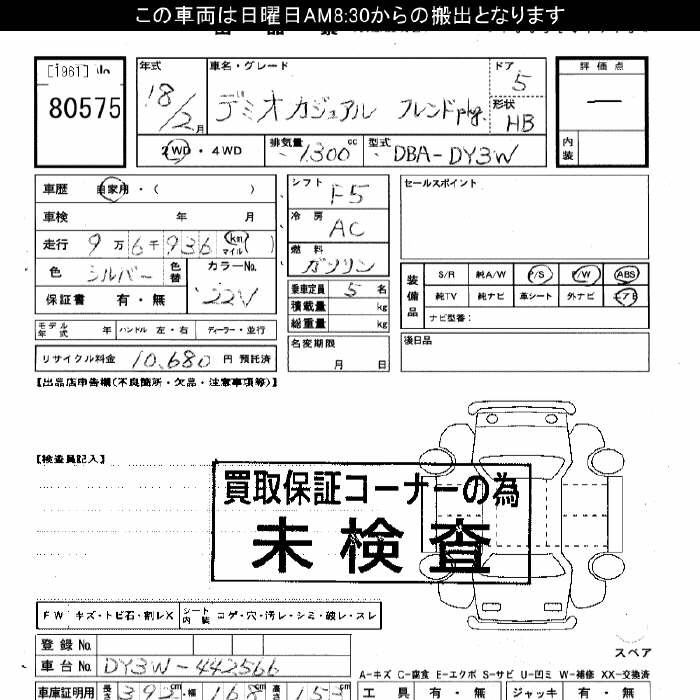 この車両は日曜日AM8:30からの搬出となります
[1961]
80575
年式
18/2月
車名・グレード
デミオカジュアル フレンドpkg.
ドア
5
形状
HB
評価点
—
内装
2WD・4WD
排気量
1300cc
型式
DBA-DY3W
車歴 自家用・( )
車検 年 月
走行 9万6千936 (km マイル)
色 シルバー 色替
カラーNo.
22V
保証書 有・無
シフト
F5
冷房
AC
燃料
ガソリン
乗車定員 5名
積載量 kg
総重量 kg
セールスポイント
装備品
S/R 純A/W P/S P/W ABS
純TV 純ナビ 革シート 外ナビ エアB
ナビ型番:
モデル年式 年 ハンドル 左・右 ディーラー・並行
リサイクル料金 10,680 円 預託済
名変期限
月 日
後日品
【出品店申告欄(不良箇所・欠品・注意事項等)】
【検査員記入】
買取保証コーナーの為
未検査
FW キズ・トビ石・割レX シート内装 コゲ・穴・汚レ・シミ・破レ・スレ
スペア
登録No.
車台No. DY3W-442566
A-キズ C-腐食 E-エクボ S-サビ U-凹ミ W-補修 XX-交換済
車庫証明用 長さ 392cm 幅 168cm 高さ 153
工具 有・無 ジャッキ 有・無